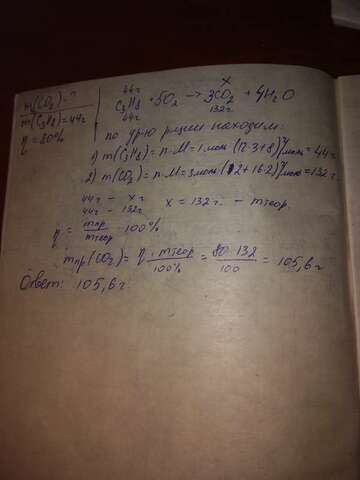 m(CO₂) - ?
m(C₃H₈) = 44г
η = 80%
44г x
C₃H₈ + 5O₂ → 3CO₂ + 4H₂O
44г 132г
по ур-ю реакции находим:
1) m(C₃H₈) = n·M = 1 моль · (12·3+8) г/моль = 44г
2) m(CO₂) = n·M = 3 моль · (12+16·2) г/моль = 132г
44г - x г
44г - 132г x = 132г. - mтеор.
η = mпр / mтеор · 100%
mпр(CO₂) = η · mтеор / 100% = 80·132 / 100 = 105,6 г
Ответ: 105,6 г.